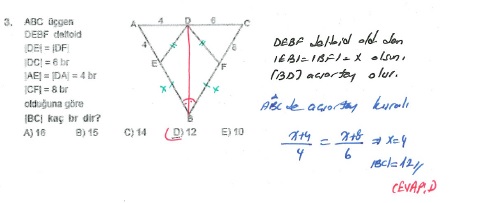 3. ABC üçgen
DEBF deltoid
|DE| = |DF|
|DC| = 6 br
|AE| = |DA| = 4 br
|CF| = 8 br
olduğuna göre
|BC| kaç br dir?
A) 16 B) 15 C) 14 D) 12 E) 10
A 4 D 6 C
4 8
E F
x x
B
DEBF deltoid old. dan
|EB| = |BF| = x olsun.
[BD] açıortay olur.
ABC de açıortay kuralı
x+4/4 = x+8/6 ⇒ x=4
|BC| = 12 //
CEVAP: D